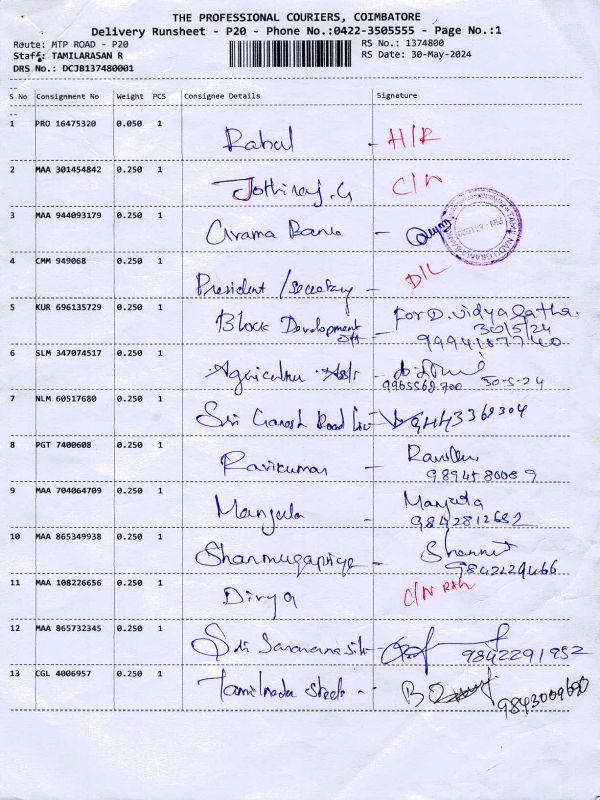 THE PROFESSIONAL COURIERS, COIMBATORE
Delivery Runsheet - P20 - Phone No.:0422-3505555 - Page No.:1
Route: MTP ROAD - P20
RS No.: 1374800
Staff: TAMILARASAN R
RS Date: 30-May-2024
DRS No.: DCJB137480001
S No Consignment No Weight PCS Consignee Details Signature
1 PRO 16475320 0.050 1 Rahul - H/R
2 MAA 301454842 0.250 1 Jothiraj.G C/N
3 MAA 944093179 0.250 1 Grama Bank -
TAMIL NADU GRAMA BANK
4 CMM 949068 0.250 1 President / Secretary - D/L
5 KUR 696135729 0.250 1 Block Development - For D. Vidya Latha.
30/5/24
6 SLM 347074517 0.250 1 Agriculture
9965568700 30-5-24
7 NLM 60517680 0.250 1 Sri Ganesh Road
8 PGT 7400608 0.250 1 Ravikumar -
9894580089
9 MAA 704064709 0.250 1 Manjula - Manjula
9842812682
10 MAA 865349938 0.250 1 Shanmugapriya -
9842229466
11 MAA 108226656 0.250 1 Divya C/N
12 MAA 865732345 0.250 1 Sri - 9842291952
13 CGL 4006957 0.250 1 Tamilnadu Steels -- 9843009690